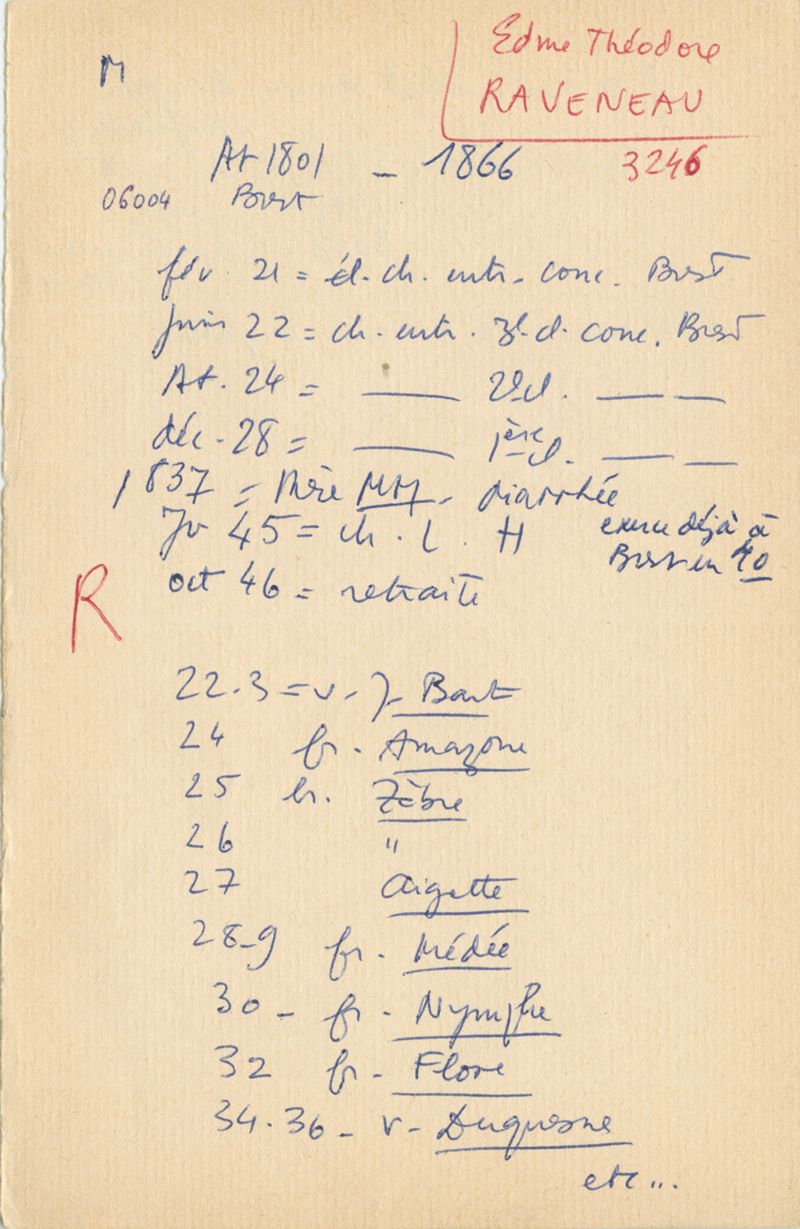 M
Edme Théodore
RAVENEAU
At 1801 - 1866
3246
06004 Brest
fév 21 = él. ch. entr. conc. Brest
Juin 22 = ch. entr. 3e cl. conc. Brest
At. 24 = —— 2e cl. —— ——
déc. 28 = —— 1ère cl. —— ——
1837 = thèse MM. diarrhée
Jv 45 = ch. L. H
exerce déjà à
Brest en 40
R
oct 46 = retraite
22-3 = v. J. Bart
24 fr. Amazone
25 br. Zèbre
26 "
27
28-9 fr. Médée
30 - fr. Nymphe
32 fr. Flore
34-36 - v. Duquesne
etc...